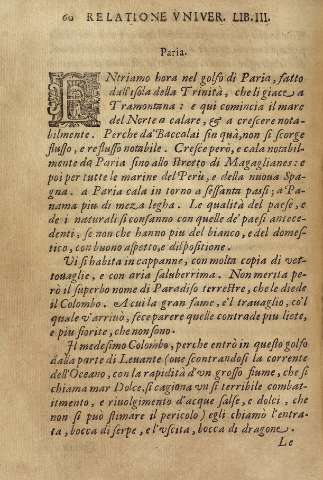 60 RELATIONE VNIVER. LIB. III.
Paria.
ENtriamo hora nel golfo di Paria, fatto
dall'isola della Trinità, che li giace a
Tramontana: e qui comincia il mare
del Norte a calare, & a crescere nota-
bilmente. Perche da' Baccolai sin quà, non si scorge
flusso, e reflusso notabile. Cresce però, e cala notabil-
mente da Paria sino allo stretto di Magaglianes: e
poi per tutte le marine del Perù, e della nuoua Spa-
gna. a Paria cala in torno a sessanta passi; a' Pa-
nama piu di meza legha. Le qualità del paese, e
de i naturali si confanno con quelle de' paesi antece-
denti, se non che hanno piu del bianco, e del domes-
tico, con buono aspetto, e dispositione.
Vi si habita in cappanne, con molta copia di vet-
touaglie, e con aria saluberrima. Non merita pe-
rò il superbo nome di Paradiso terrestre, che le diede
il Colombo. A cui la gran fame, e'l trauaglio, co'l
quale v'arriuò, fece parere quelle contrade piu liete,
e piu fiorite, che non sono.
Il medesimo Colombo, perche entrò in questo golfo
dalla parte di Leuante (oue scontrandosi la corrente
dell'Oceano, con la rapidità d'vn grosso fiume, che si
chiama mar Dolce, si cagiona vn sì terribile combat-
timento, e riuolgimento d'acque salse, e dolci, che
non si può stimare il pericolo) egli chiamò l'entra-
ta, bocca di serpe, e l'vscita, bocca di dragone.
Le